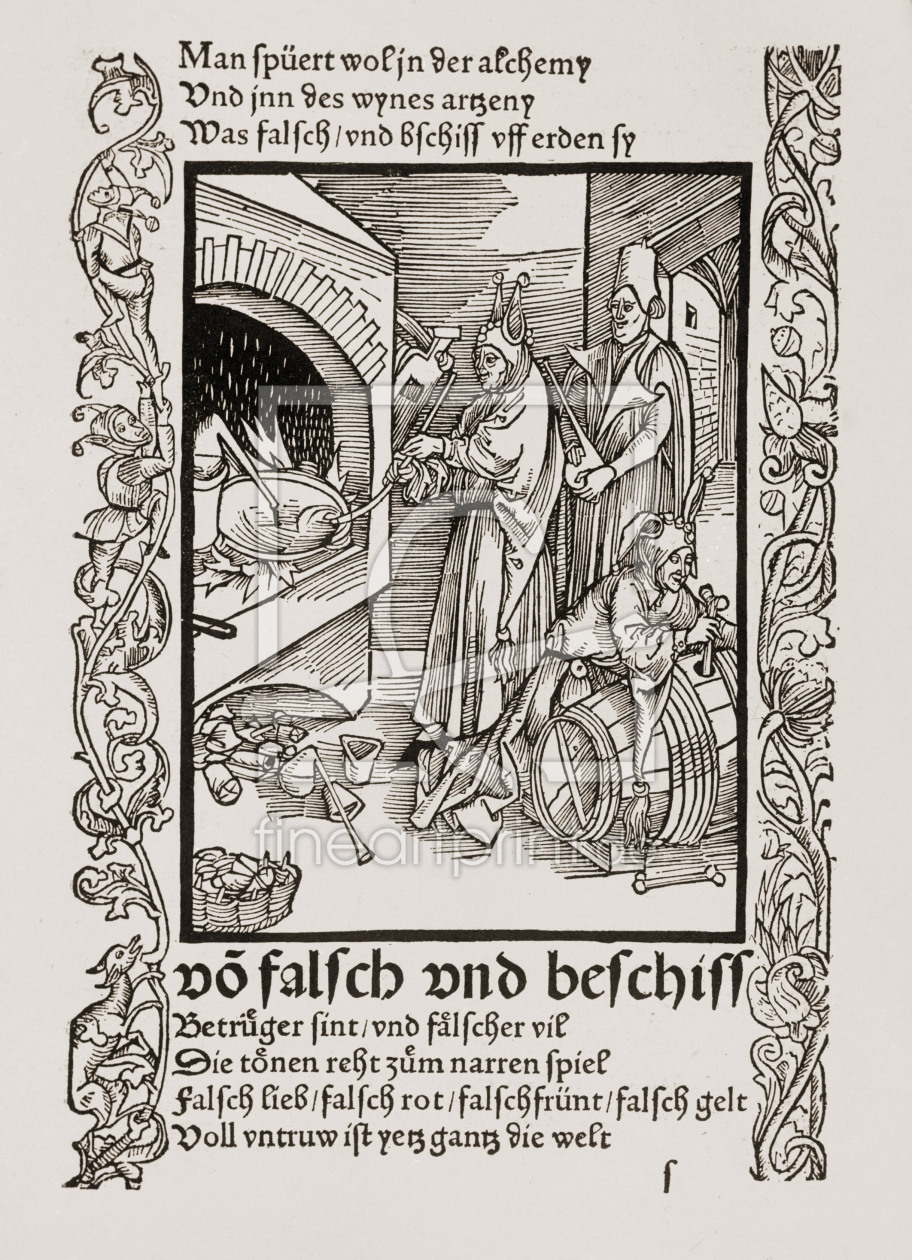 Man ſpüert wol jn der alchemy
Vnd jnn des wynes artzeny
Was falſch / vnd bſchiſſ vff erden ſy
fineartprint
võ falſch vnd beſchiſſ
Betruͤger ſint / vnd faͤlſcher vil
Die toͤnen reht zuͦm narren ſpiel
Falſch lieb / falſch rot / falſchfrünt / falſch gelt
Voll vntruw iſt yetz gantz die welt
ſ